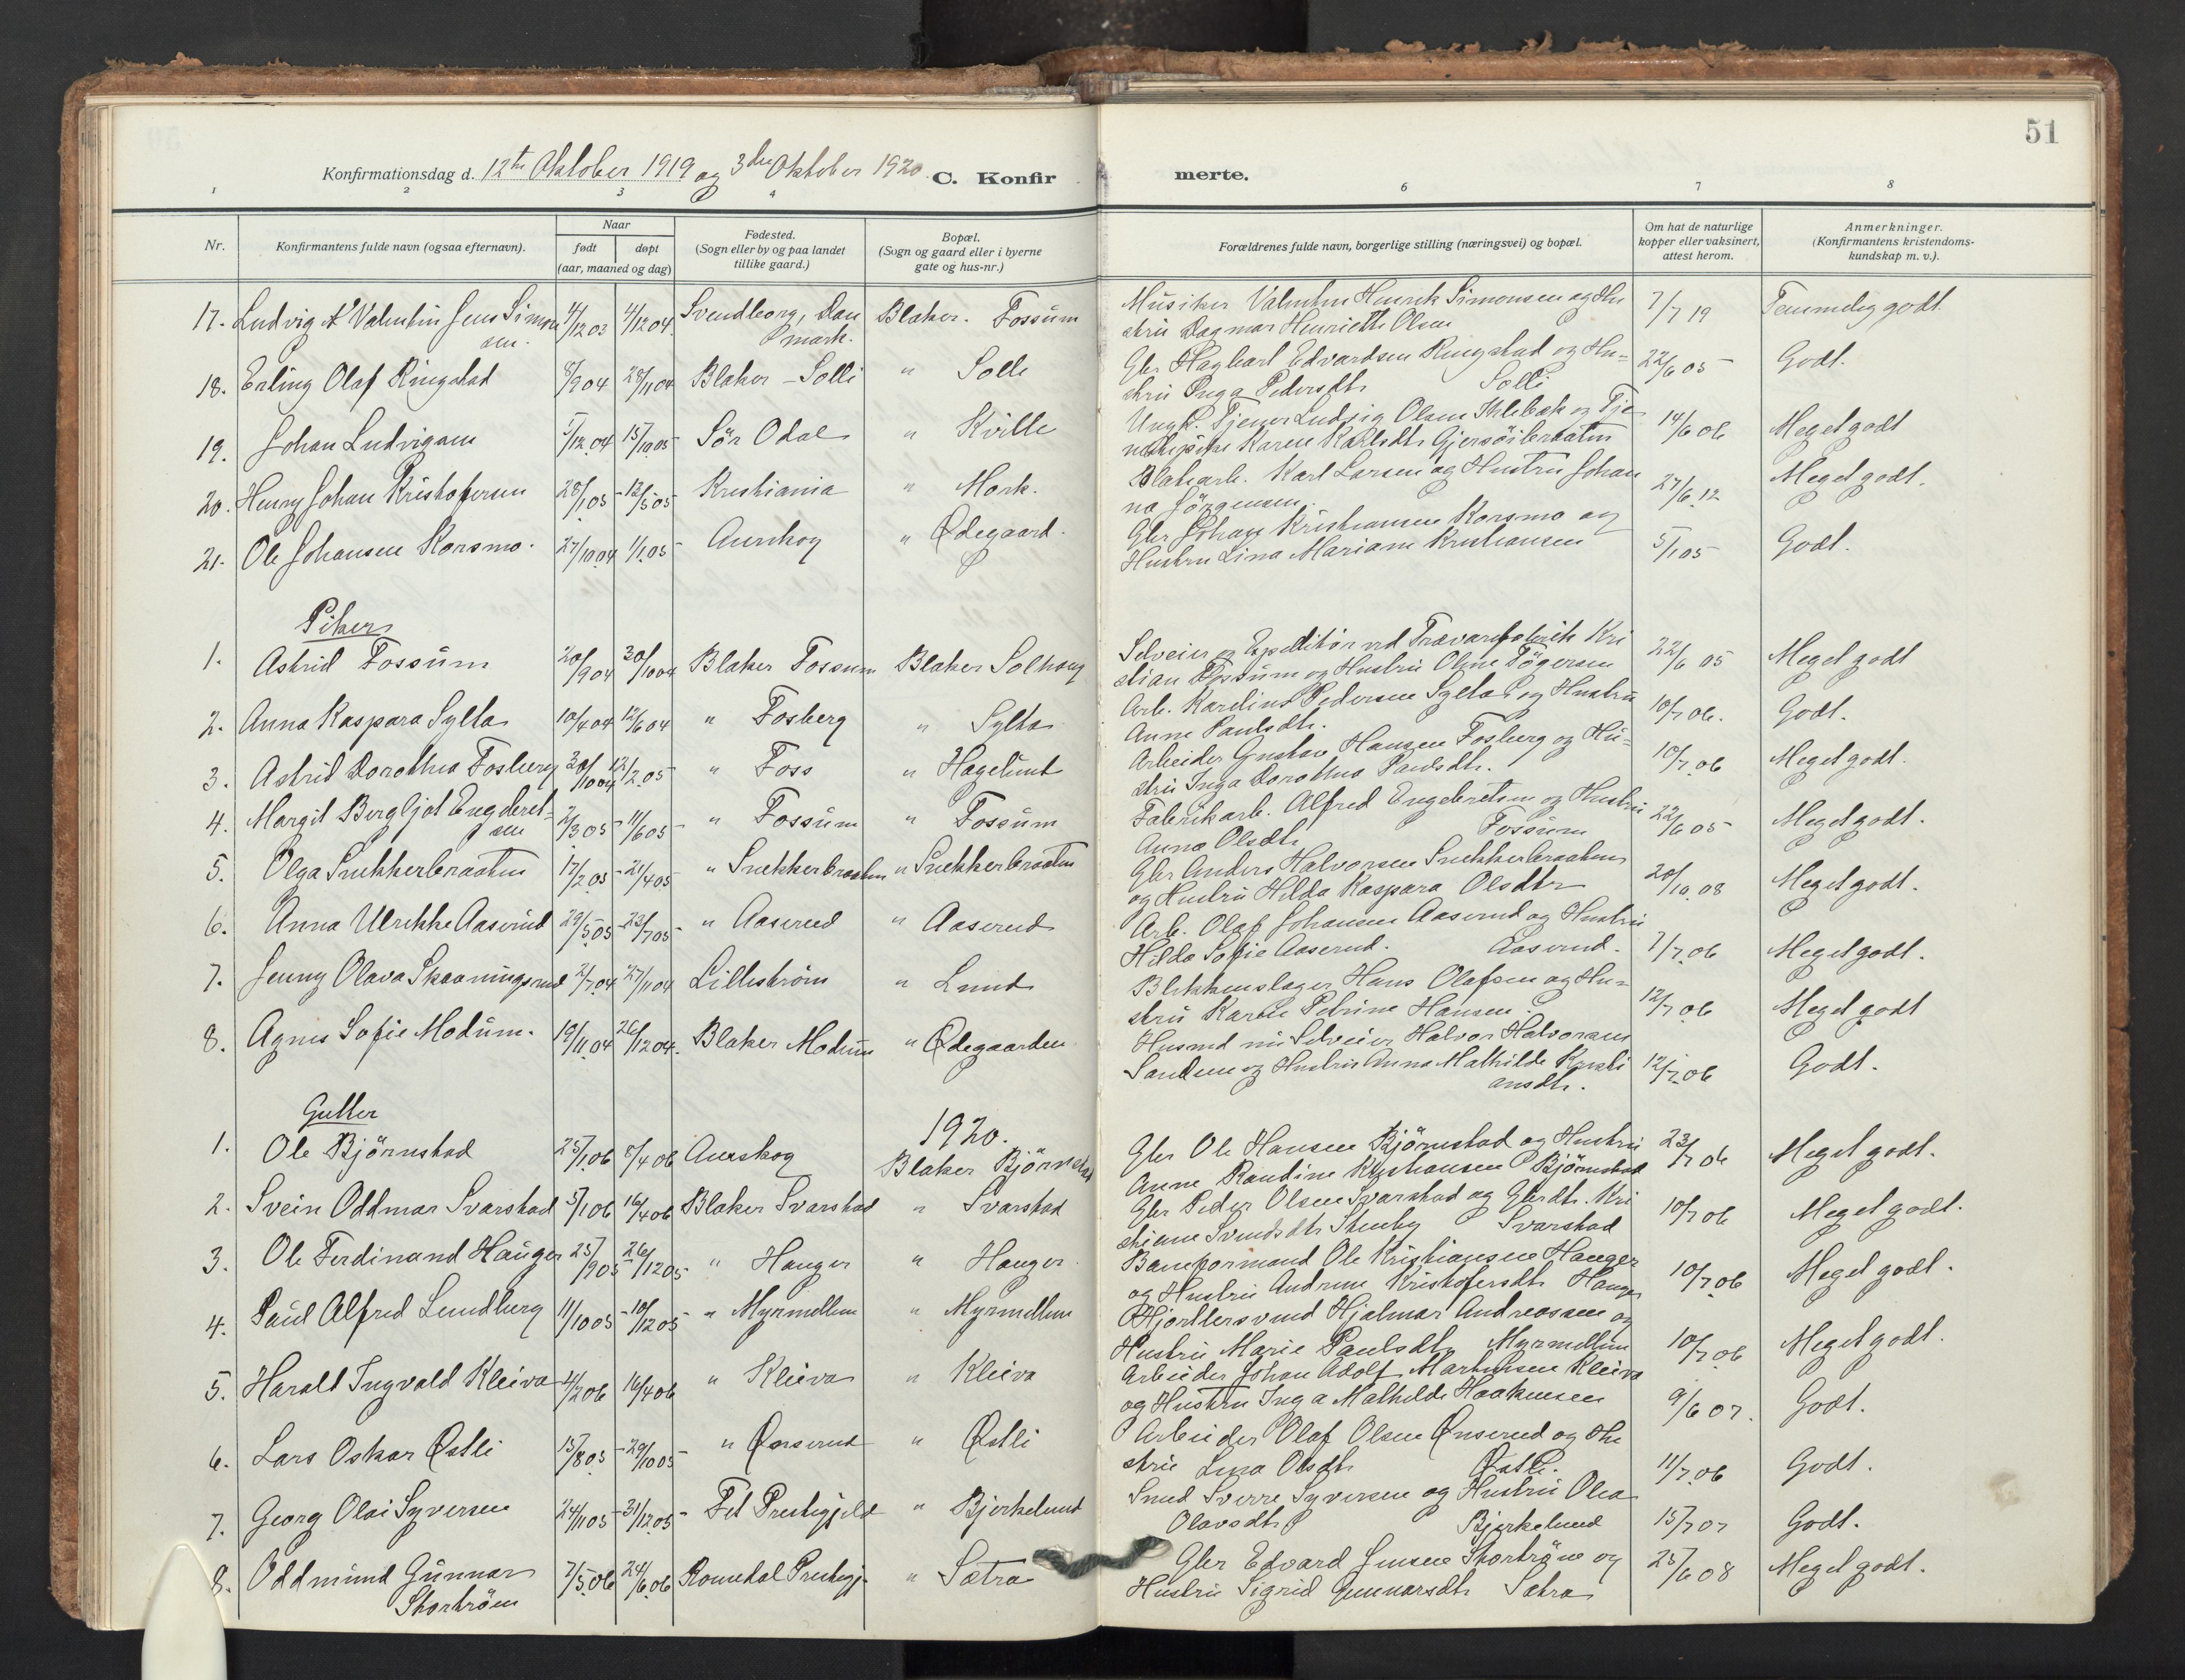 51
Konfirmationsdag d. 12te Oktober 1919 og 3die Oktober 1920. C. Konfir merte.
1 2 3 4 6 7 8
Nr. Konfirmantens fulde navn (ogsaa efternavn). Naar født døpt (aar, maaned og dag) Fødested. (Sogn eller by og paa landet tillike gaard.) Bopæl. (Sogn og gaard eller i byerne gate og hus-nr.) Forældrenes fulde navn, borgerlige stilling (næringsvei) og bopæl. Om hat de naturlige kopper eller vaksinert, attest herom. Anmerkninger. (Konfirmantens kristendoms-kundskap m. v.).
17. Ludvig Valentin Jens Simon sen. 4/12 03 4/12 04 Svendborg, Dan mark. Blaker. Fossum Musiker Valentin Henrik Simonsen og Hu 7/7 19 Temmelig godt.
stru Dagmar Henriette Olsen
18. Erling Olaf Ringstad 8/9 04 28/11 04 Blaker - Solli " Solli Gbr Hagbart Edvardsen Ringstad og Hu= 22/6 05 Godt.
stru Inga Pedersdtr Solli
19. Johan Ludvigsen 5/12 04 15/10 05 Sör Odal " Kville Ungk. Tjener Ludvig Olsen og Tje 14/6 06 Meget godt
Karen Karlsdtr
20. Henry Johan Kristofersen 28/1 05 12/5 05 Kristiania " Mork. Karl Larsen og Hustru Johan 27/6 12 Meget godt.
na Jörgensen
21. Ole Johansen Korsmo. 27/10 04 1/1 05 Aurskog " Ødegaard. Gbr Johan Kristiansen Korsmo og 5/1 05 Godt.
Hustru Lina Mariane Kristiansen
Piker
1. Astrid Fossum 20/9 04 30/10 04 Blaker Fossum Blaker Solhaug Selveier og Expeditör ved Trævarefabrik Kri 22/6 05 Meget godt
stian Fossum og Hustru Oline Tögersen
2. Anna Kaspara Sylta 10/4 04 12/6 04 " Fosberg " Sylta Arb. Karelius Pedersen Sylta og Hustru 10/7 06. Godt.
Anne Paulsdtr.
3. Astrid Dorothea Fosberg 30/10 04 12/2 05 " Foss " Hagelund Arbeider Gustav Hansen Fosberg og Hu= 10/7 06 Meget godt.
stru Inga Dorothea Paulsdtr.
4. Margit Bergljot Engebret= sen 2/3 05 11/6 05 " Fossum " Fossum Fabrikarb. Alfred Engebretsen og Hustru 22/6 05 Meget godt.
Anna Olsdtr Fossum
5. Olga Snekkerbraaten 17/2 05 21/4 05 " Snekkerbraaten " Snekkerbraaten Gbr Anders Halvorsen Snekkerbraaten 20/10 08 Meget godt.
og Hustru Hilda Kaspara Olsdtr
6. Anna Ulrikke Aaserud 29/5 05 23/7 05 " Aaserud " Aaserud Arb. Olaf Johansen Aaserud og Hustru 7/7 06 Meget godt.
Hilda Sofie Aaserud. Aaserud.
7. Jenny Olava Skaaningsrud 2/7 04 27/11 04 Lilleström " Lund Blikkenslager Hans Olafsen og Hu= 12/7 06 Meget godt
stru Karen Petrine Hansen
8. Agnes Sofie Modum. 19/11 04 26/12 04. Blaker Modum " Ødegaarden Husmd nu Selveier Halvor Halvorsen 12/7 06 Godt.
Sanden og Hustru Anna Mathilde Kristi
ansdtr.
Gutter 1920.
1. Ole Björnstad 25/1 06 8/4 06 Aurskog Blaker Björnstad Gbr Ole Hansen Björnstad og Hustru 23/7 06 Meget godt.
Anne Randine Kristiansen Björnstad
2. Svein Oddmar Svarstad 5/1 06 16/4 06 Blaker Svarstad " Svarstad Gbr Peder Olsen Svarstad og Gbrdtr. Kri 10/7 06 Meget godt.
stiane Svendsdtr Stenby Svarstad
3. Ole Ferdinand Hauger 25/9 05 26/12 05 " Hauger " Hauger Baneformand Ole Kristiansen Hauger 10/7 06 Meget godt.
og Hustru Andrine Kristofersdtr Hauger
4. Paul Alfred Lundberg 11/10 05 10/12 05 " Myrmellem " Myrmellem Hjalmar Andreassen og 10/7 06 Meget godt.
Hustru Marie Paulsdtr Myrmellem
5. Harald Ingvald Kleiva 4/2 06 16/4 06 " Kleiva " Kleiva Arbeider Johan Adolf Martinsen Kleiva 9/6 07. Godt.
og Hustru Inga Mathilde Haakensen
6. Lars Oskar Østli 15/8 05 29/10 05 " Ønserud " Østli Arbeider Olaf Olsen Ønserud og Hu 11/7 06 Godt.
stru Lina Olsdtr Østli.
7. Georg Olai Syversen 24/11 05 31/12 05 Fet Prestegjeld " Bjerkelund Smed Sverre Syversen og Hustru Olea 15/7 07 Godt.
Olavsdtr Bjerkelund
8. Oddmund Gunnar Storström 7/5 06 24/6 06 Romedal Prestegj. " Sætra Gbr Edvard Jensen Storström og 25/6 08 Meget godt.
Hustru Sigrid Gunnarsdtr Sætra